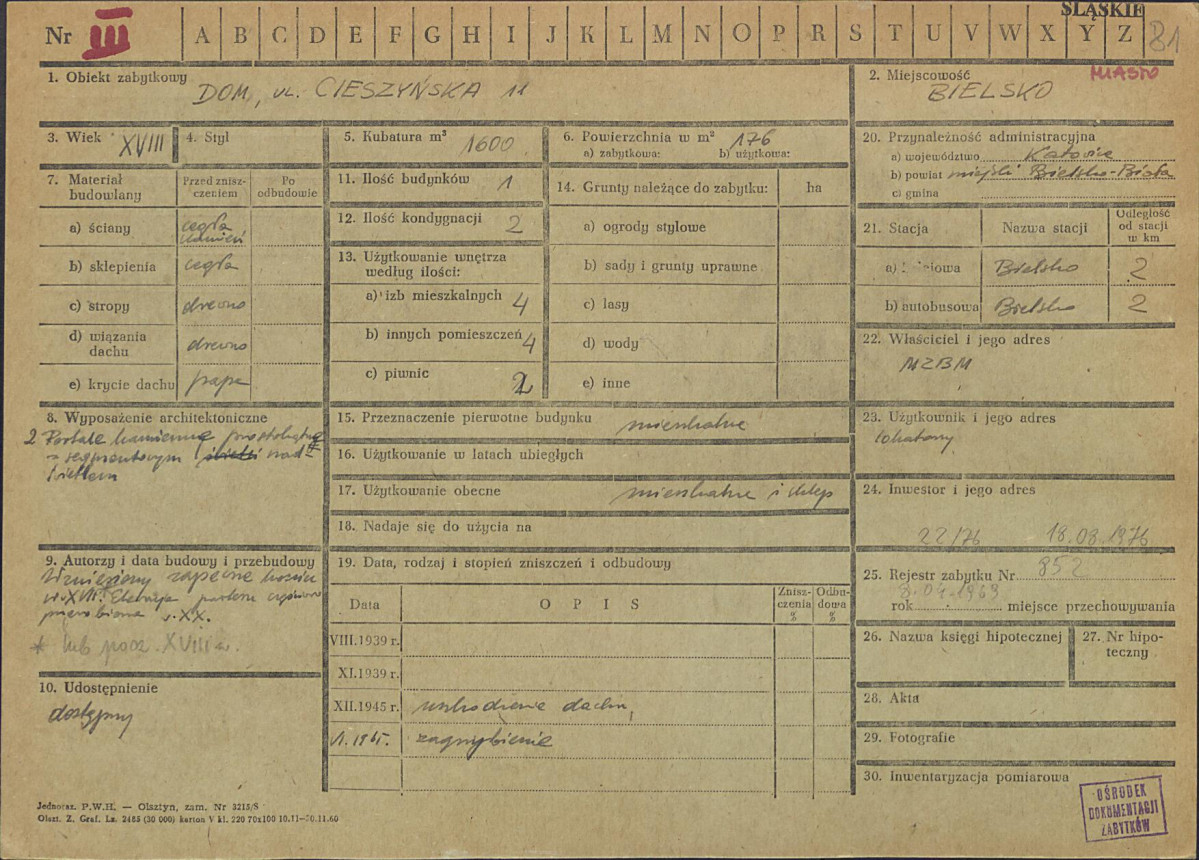 ŚLĄSKIE
Nr III A B C D E F G H I J K L M N O P R S T U V W X Y Z 81
1. Obiekt zabytkowy
DOM, UL. CIESZYŃSKA 11
2. Miejscowość MIASTO
BIELSKO
3. Wiek XVIII
4. Styl
5. Kubatura m³ 1600
6. Powierzchnia w m² 176
a) zabytkowa: b) użytkowa:
7. Materiał budowlany
Przed zniszczeniem
Po odbudowie
a) ściany cegła
kamień
b) sklepienia cegła
c) stropy drewno
d) wiązania dachu drewno
e) krycie dachu papa
11. Ilość budynków 1
12. Ilość kondygnacji 2
13. Użytkowanie wnętrza
według ilości:
a) izb mieszkalnych 4
b) innych pomieszczeń 4
c) piwnic 2
14. Grunty należące do zabytku: ha
a) ogrody stylowe
b) sady i grunty uprawne
c) lasy
d) wody
e) inne
20. Przynależność administracyjna
a) województwo Katowice
b) powiat miejski Bielsko-Biała
c) gmina
21. Stacja Nazwa stacji Odległość od stacji w km
a) Bielsko 2
b) autobusowa Bielsko 2
22. Właściciel i jego adres
MZBM
8. Wyposażenie architektoniczne
2 Portale kamienne prostokątne
z segmentowym nad-
świetlem
15. Przeznaczenie pierwotne budynku mieszkalne
16. Użytkowanie w latach ubiegłych
17. Użytkowanie obecne mieszkalne i sklep
18. Nadaje się do użycia na
23. Użytkownik i jego adres
lokatorzy
24. Inwestor i jego adres
22/76 18.08.1976
9. Autorzy i data budowy i przebudowy
Wzniesiony zapewne
w. XVII. Elewacja parteru częściowo
przerobiona w. XX.
* lub pocz. XVIII w.
10. Udostępnienie
dostępny
19. Data, rodzaj i stopień zniszczeń i odbudowy
Data OPIS Zniszczenia % Odbudowa %
VIII.1939 r.
XI.1939 r.
XII.1945 r. uszkodzenie dachu,
zagrzybienie
25. Rejestr zabytku Nr 852
rok 8.01.1969 miejsce przechowywania
26. Nazwa księgi hipotecznej
27. Nr hipoteczny
28. Akta
29. Fotografie
30. Inwentaryzacja pomiarowa
OŚRODEK
DOKUMENTACJI
ZABYTKÓW
Jednoraz. P.W.H. — Olsztyn, zam. Nr 3215/S
Olszt. Z. Graf. Lz. 2465 (30 000) karton V kl. 220 70x100 10.11—30.11.60